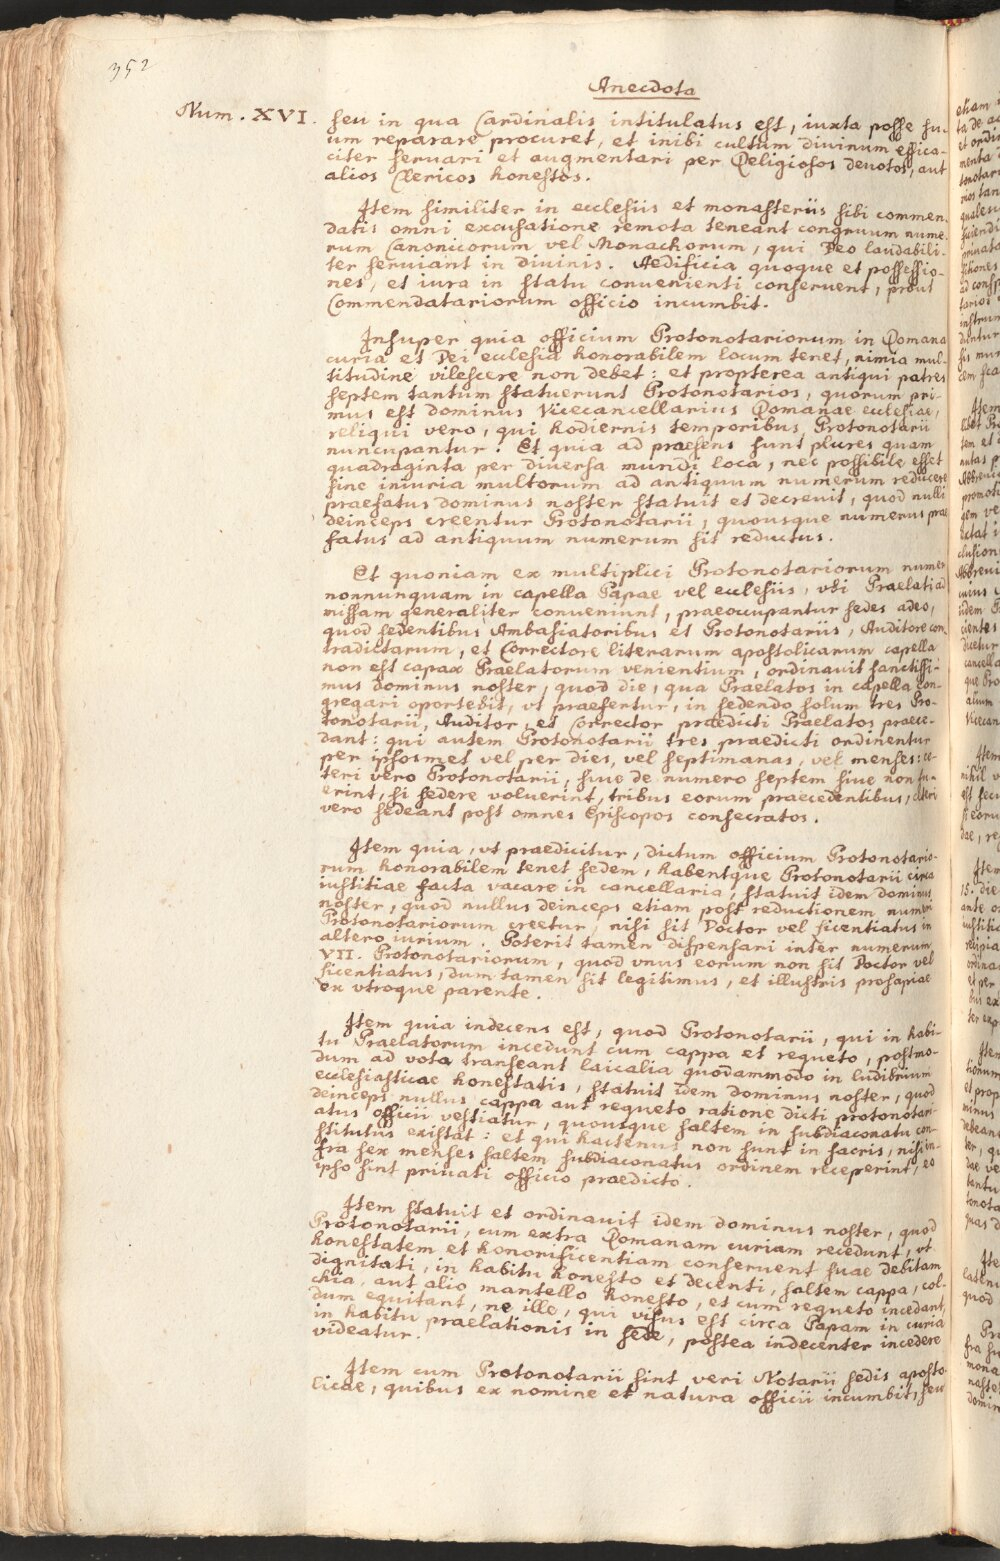 352
Anecdota
Num. XVI.
seu in qua Cardinalis intitulatus est, iuxta posse su-
um reparare procuret, et inibi cultum divinum effica-
citer servari et augmentari per Religiosos devotos, aut
alios Clericos honestos.
Item similiter in ecclesiis et monasteriis sibi commen-
datis omni excusatione remota teneant congruum nume-
rum Canonicorum vel Monachorum, qui Deo laudabili-
ter serviant in divinis. Aedificia quoque et possessio-
nes, et iura in statu convenienti conservent, prout
Commendatariorum officio incumbit.
Insuper quia officium Protonotariorum in Romana
curia et Dei ecclesia honorabilem locum tenet, nimia mul-
titudine vilescere non debet: et propterea antiqui patres
septem tantum statuerunt Protonotarios, quorum pri-
mus est dominus Vicecancellarius Romanae ecclesiae,
reliqui vero, qui hodiernis temporibus Protonotarii
nuncupantur. Et quia ad praesens sunt plures quam
quadraginta per diversa mundi loca, nec possibile esset
sine iniuria multorum ad antiquum numerum reducere
praefatus dominus noster statuit et decrevit, quod nulli
deinceps creentur Protonotarii, quousque numerus prae
fatus ad antiquum numerum sit reductus.
Et quoniam ex multiplici Protonotariorum numer
nonnunquam in capella Papae vel ecclesiis, vbi Praelati ad
missam generaliter conveniunt, praeoccupantur sedes adeo,
quod sedentibus Ambasiatoribus et Protonotariis, Auditore con-
tradictarum, et Correctore literarum apostolicarum capella
non est capax Praelatorum venientium, ordinavit sanctissi-
mus dominus noster, quod die, qua Praelatos in capella con-
gregari oportebit, vt praefertur, in sedendo solum tres Pro-
tonotarii, Auditor, et Corrector praedicti Praelatos praece-
dant: qui autem Protonotarii tres praedicti ordinentur
per ipsosmet vel per dies, vel septimanas, vel menses: ce-
teri vero Protonotarii, sive de numero septem sive non fu-
erint, si sedere voluerint, tribus eorum praecedentibus, ceteri
vero sedeant post omnes Episcopos consecratos.
Item quia, vt praedicitur, dictum officium Protonotario-
rum honorabilem tenet sedem, habentque Protonotarii circa
iustitiae facta vacare in cancellaria, statuit idem dominus
noster, quod nullus deinceps etiam post reductionem numeri
Protonotariorum creetur, nisi sit Doctor vel licentiatus in
altero iurium. Poterit tamen dispensari inter numerum
VII. Protonotariorum, quod vnus eorum non sit Doctor vel
licentiatus, dum tamen sit legitimus, et illustris prosapiae
ex vtroque parente.
Item quia indecens est, quod Protonotarii, qui in habi-
tu Praelatorum incedunt cum cappa et roqueto, postmo-
dum ad vota transeant laicalia quodammodo in ludibrium
ecclesiasticae honestatis, statuit idem dominus noster, quod
deinceps nullus cappa aut roqueto ratione dicti protonotari-
atus officii vestiatur, quousque saltem in subdiaconatu con-
stitutus existat: et qui hactenus non sunt in sacris, nisi in-
fra sex menses saltem subdiaconatus ordinem receperint, eo
ipso sint privati officio praedicto.
Item statuit et ordinavit idem dominus noster, quod
Protonotarii, cum extra Romanam curiam recedunt, vt
honestatem et honorificentiam conservent suae debitam
dignitati, in habitu honesto et decenti, saltem cappa, col-
chia, aut alio mantello honesto, et cum roqueto incedant,
dum equitant, ne ille, qui visus est circa Papam in curia
in habitu praelationis in sede, postea indecenter incedere
videatur.
Item cum Protonotarii sint veri Notarii sedis aposto-
licae, quibus ex nomine et natura officii incumbit, seu